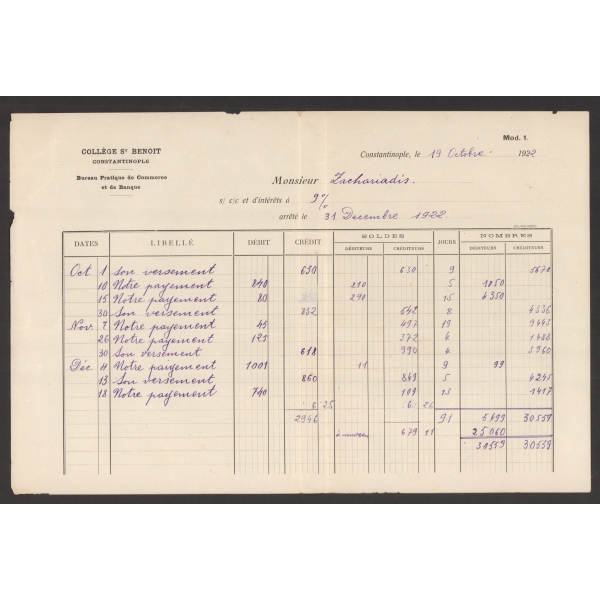 COLLÈGE Sᵗ BENOIT
CONSTANTINOPLE
Bureau Pratique de Commerce
et de Banque
Mod. 1.
Constantinople, le 19 Octobre 1922
Monsieur Zachariadis.
s/ c/c et d'intérêts à 9%
arrêté le 31 Decembre 1922.
DATES LIBELLÉ DÉBIT CRÉDIT SOLDES JOURS NOMBRES
DÉBITEURS CRÉDITEURS DÉBITEURS CRÉDITEURS
Oct 1 Son versement 630 630 9 5670
10 Notre payement 840 210 5 1050
15 Notre payement 80 290 15 4350
30 Son versement 832 542 8 4336
Nov. 7 Notre payement 45 497 19 9443
26 Notre payement 125 372 4 1488
30 Son versement 618 990 4 3960
Déc 4 Notre payement 1001 11 9 99
13 Son versement 860 849 5 4245
18 Notre payement 740 109 13 1417
6 25 6 26
2946 91 5499 30559
à nouveau 679 11 25060
30559 30559